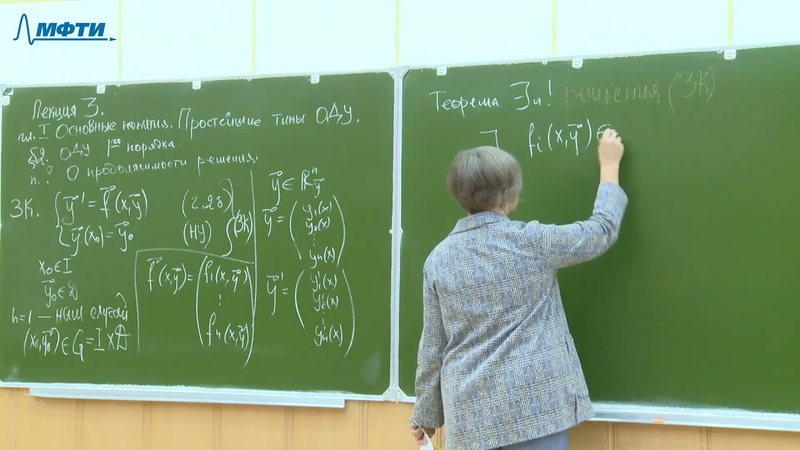 МФТИ
Лекция 3.
гл. I Основные понятия. Простейшие типы ОДУ.
§2. ОДУ 1го порядка.
п. ? О продолжимости решения.
ЗК. { y⃗' = f⃗(x, y⃗) (1.26)
{ y⃗(x₀) = y⃗₀ (НУ) } (ЗК)
x₀ ∈ I
y⃗₀ ∈ D
n=1 — наш случай
(x₀, y⃗₀) ∈ G = I × D
f⃗(x, y⃗) = ( f₁(x, y⃗)
⋮
fₙ(x, y⃗) )
y⃗ ∈ ℝⁿ y⃗
y⃗ = ( y₁(x)
y₂(x)
⋮
yₙ(x) )
y⃗' = ( y₁'(x)
y₂'(x)
⋮
yₙ'(x) )
Теорема ∃ и ! решения (ЗК)
] fᵢ(x, y⃗) ∈